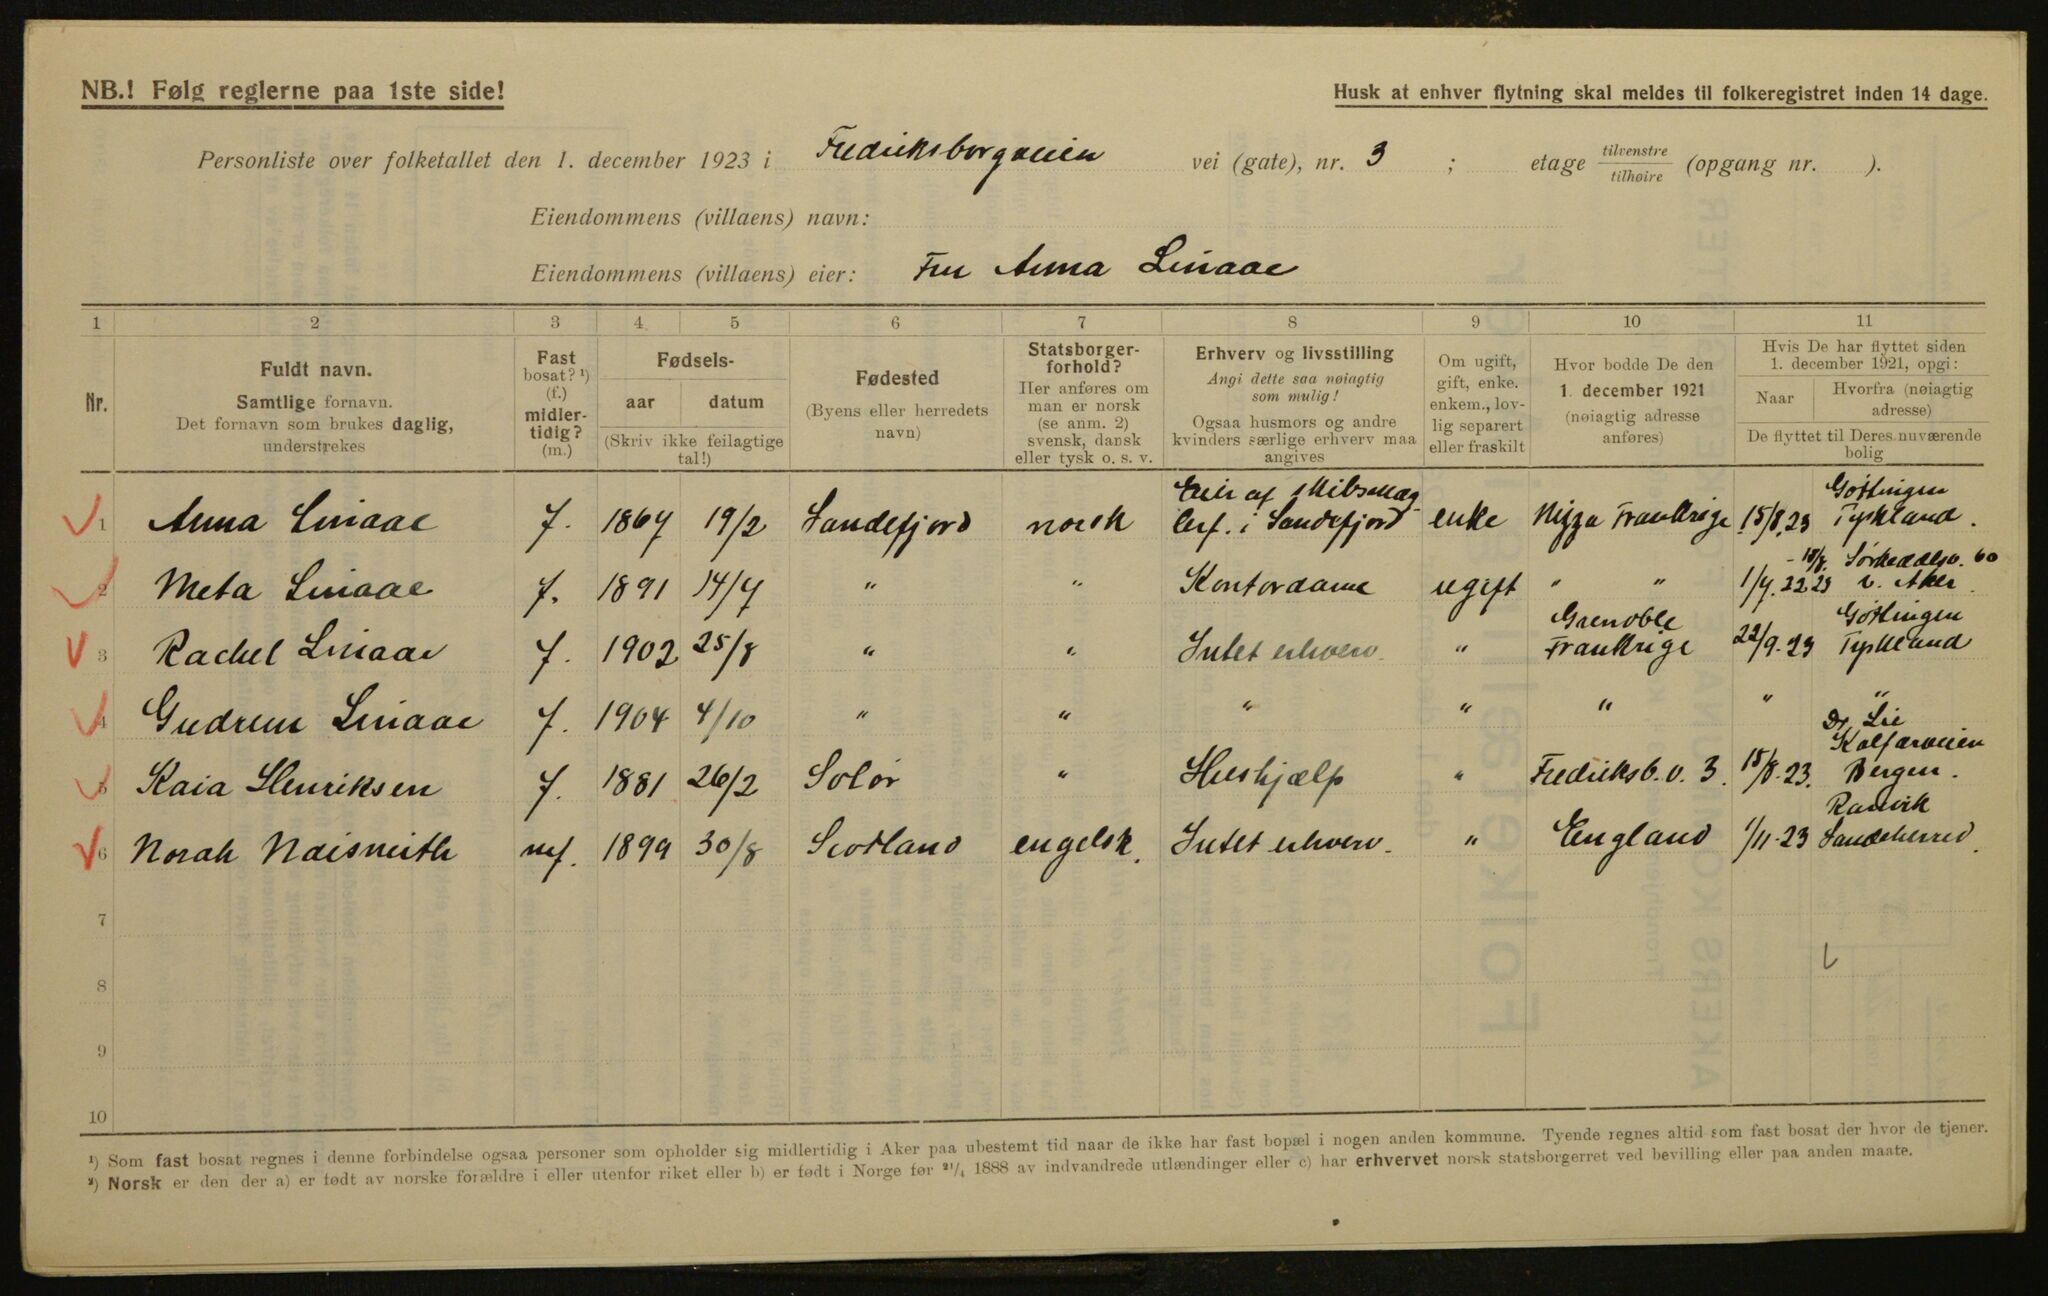 NB.! Følg reglerne paa 1ste side!
Husk at enhver flytning skal meldes til folkeregistret inden 14 dage.
Personliste over folketallet den 1. december 1923 i Fredriksborgveien vei (gate), nr. 3 ; etage tilvenstre/tilhøire (opgang nr. ).
Eiendommens (villaens) navn:
Eiendommens (villaens) eier: Fru Anna Linaae
1 2 3 4 5 6 7 8 9 10 11
Nr.
Fuldt navn.
Samtlige fornavn.
Det fornavn som brukes daglig,
understrekes
Fast
bosat? ¹)
(f.)
midler-
tidig?
(m.)
Fødsels-
aar datum
(Skriv ikke feilagtige
tal!)
Fødested
(Byens eller herredets
navn)
Statsborger-
forhold?
Her anføres om
man er norsk
(se anm. 2)
svensk, dansk
eller tysk o. s. v.
Erhverv og livsstilling
Angi dette saa nøiagtig
som mulig!
Ogsaa husmors og andre
kvinders særlige erhverv maa
angives
Om ugift,
gift, enke.
enkem., lov-
lig separert
eller fraskilt
Hvor bodde De den
1. december 1921
(nøiagtig adresse
anføres)
Hvis De har flyttet siden
1. december 1921, opgi:
Naar Hvorfra (nøiagtig
adresse)
De flyttet til Deres nuværende
bolig
1 Anna Linaae f. 1867 19/2 Sandefjord norsk Eier af skibsmæg-
lerf. i Sandefjord enke Nizza Frankrige 15/8.23 Gøttingen
Tyskland.
2 Meta Linaae f. 1891 14/7 " " Kontordame ugift " " 1/7.22 - 18/8. 23 Sørkedalsv. 60
v. Aker
3 Rachel Linaae f. 1902 25/8 " " Intet erhverv. " Grenoble
Frankrige 22/9.23 Gøttingen
Tyskland
4 Gudrun Linaae f. 1904 4/10 " " " " " " "
5 Kaia Henriksen f. 1881 26/2 Solør " Hushjælp " Fredriksb. v. 3. 15/8.23. Dr. Lie
Kalfarveien
Bergen.
6 Norah Naismith mf. 1899 30/8 Scotland engelsk. Intet erhverv. " England 1/11-23 Ranvik
Sandeherred.
7
8
9
10
¹) Som fast bosat regnes i denne forbindelse ogsaa personer som opholder sig midlertidig i Aker paa ubestemt tid naar de ikke har fast bopæl i nogen anden kommune. Tyende regnes altid som fast bosat der hvor de tjener.
²) Norsk er den der a) er født av norske forældre i eller utenfor riket eller b) er født i Norge før 21/4 1888 av indvandrede utlændinger eller c) har erhvervet norsk statsborgerret ved bevilling eller paa anden maate.